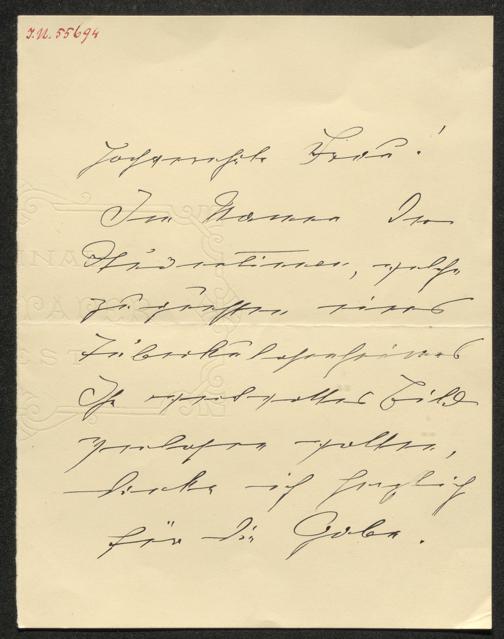 I.N. 55694
Hochgeehrte Frau!
Im Namen der
Studentinnen, welche
zugunsten eines
Tuberkulosenheimes
Ihr wertvolles Bild
verlosen wollen,
danke ich herzlich
für die Gabe.